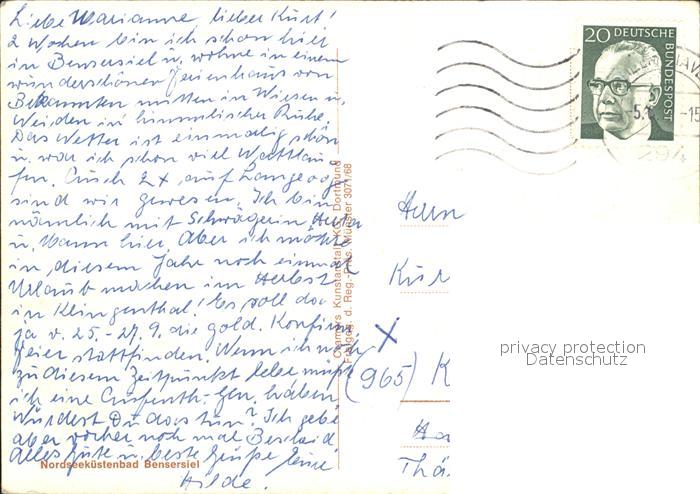 Liebe Marianne, lieber Kurt!
2 Wochen bin ich schon hier
in Bensersiel u. wohne in einem
wunderschönen Ferienhaus von
Bekannten mitten in Wiesen u.
Weiden in himmlischer Ruhe.
Das Wetter ist einmalig schön
u. war ich schon viel Wattlau-
fen. Auch 2x auf Langeoog
sind wir gewesen. Ich bin
nämlich mit Schwägerin
u. Mann hier. Aber ich möchte
in diesem Jahr noch einmal
Urlaub machen im Herbst
in Klingenthal! Es soll da
ja v. 25.-27.9. die gold. Konfirm.
feier stattfinden. Wenn ich noch
zu diesem Zeitpunkt lebe müßt
ich eine Aufenth.-Gen. haben.
Würdest Du das tun? Ich gebe
aber vorher noch mal Bescheid
Alles Gute u. beste Grüße Eure
Hilde.
Nordseeküstenbad Bensersiel
Cramers Kunstanstalt KG, Dortmund
Freigeg. d. Reg.-Präs. Münster 3071/68
20 DEUTSCHE
BUNDESPOST
-5.
-15
294
Herrn
Kur
X
(965) K
Thä
privacy protection
Datenschutz